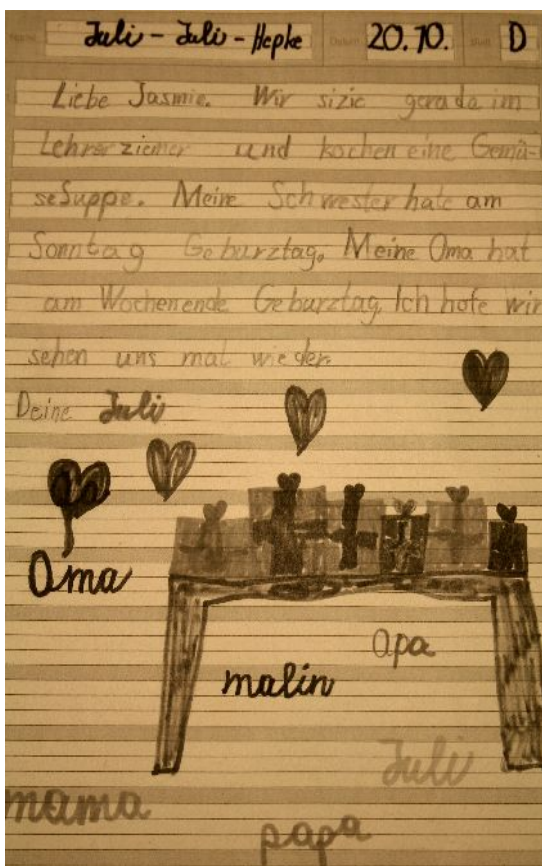 Juli - Juli - Hepke 20.10. D
Liebe Jasmie. Wir sizie gerada im
Lehrerziemer und kochen eine Gemü-
seSuppe. Meine Schwester hate am
Sonntag Geburztag. Meine Oma hat
am Wochenende Geburztag. Ich hofe wir
sehen uns mal wieder.
Deine Juli
Oma
Opa
malin
Juli
mama
papa